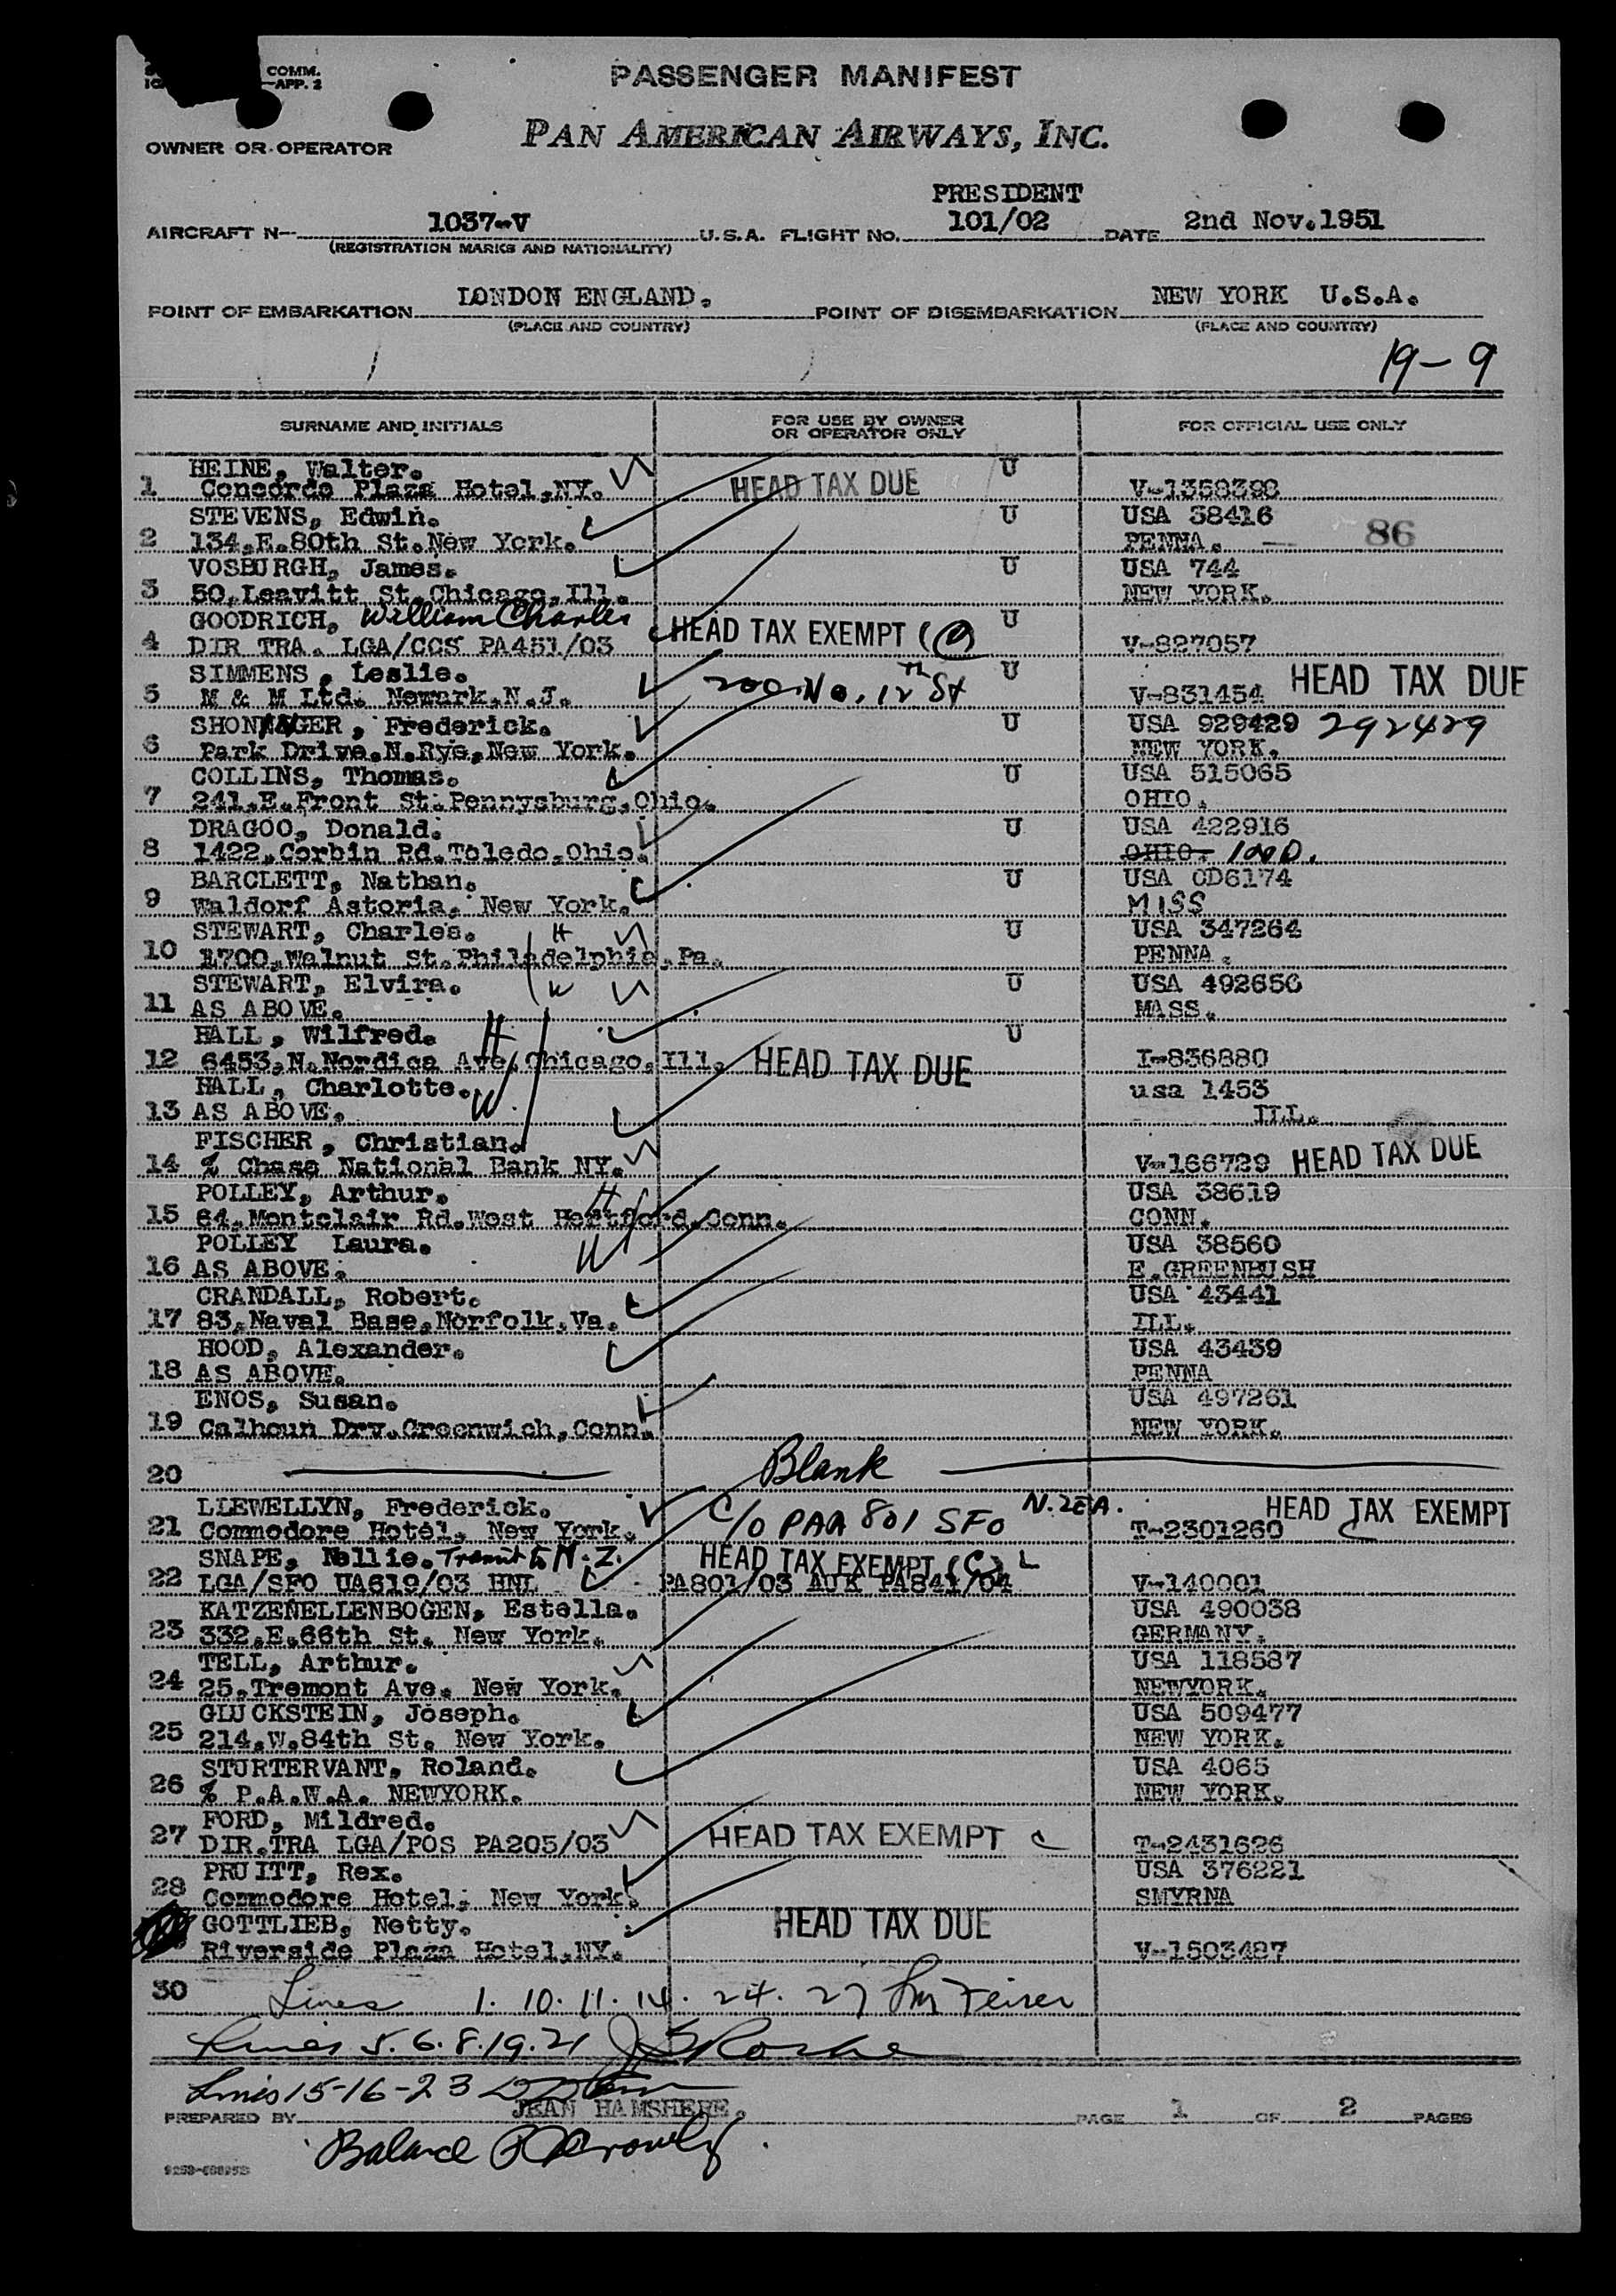 COMM.
—APP. 2
PASSENGER MANIFEST
PAN AMERICAN AIRWAYS, INC.
OWNER OR OPERATOR
PRESIDENT
AIRCRAFT N— 1037-V U.S.A. FLIGHT NO. 101/02 DATE 2nd Nov.1951
(REGISTRATION MARKS AND NATIONALITY)
POINT OF EMBARKATION LONDON ENGLAND. POINT OF DISEMBARKATION NEW YORK U.S.A.
(PLACE AND COUNTRY) (PLACE AND COUNTRY)
19-9
SURNAME AND INITIALS FOR USE BY OWNER OR OPERATOR ONLY FOR OFFICIAL USE ONLY
HEINE, Walter. U
1 Concorde Plaza Hotel,NY. HEAD TAX DUE V-1358398
STEVENS, Edwin. U USA 38416
2 134,E.80th St.New York. PENNA. — 86
VOSBURGH, James. U USA 744
3 50,Leavitt St.Chicago,Ill. NEW YORK.
GOODRICH, William Charles U
4 DIR TRA. LGA/CCS PA451/03 HEAD TAX EXEMPT (C) V-827057
SIMMENS, Leslie. U
5 M & M Ltd. Newark.N.J. 200 No. 12th St V-831454 HEAD TAX DUE
SHONINGER, Frederick. U USA 929429 292429
6 Park Drive.N.Rye,New York. NEW YORK.
COLLINS, Thomas. U USA 515065
7 241,E.Front St.Pennysburg,Ohio. OHIO.
DRAGOO, Donald. U USA 422916
8 1422,Corbin Rd.Toledo,Ohio. OHIO. IND.
BARCLETT, Nathan. U USA OD6174
9 Waldorf Astoria. New York. MISS
STEWART, Charles. H U USA 347264
10 1700,Walnut St.Philadelphia,Pa. PENNA.
STEWART, Elvira. W U USA 492656
11 AS ABOVE. MASS.
HALL, Wilfred. H U
12 6453,N.Nordica Ave.Chicago,Ill. HEAD TAX DUE I-836880
HALL, Charlotte. W usa 1453
13 AS ABOVE. ILL.
FISCHER, Christian.
14 % Chase National Bank NY. V-166729 HEAD TAX DUE
POLLEY, Arthur. H USA 38619
15 64,Montclair Rd.West Hertford,Conn. CONN.
POLLEY Laura. W USA 38560
16 AS ABOVE. E.GREENBUSH
CRANDALL, Robert. USA 43441
17 83,Naval Base,Norfolk,Va. ILL.
HOOD, Alexander. USA 43439
18 AS ABOVE. PENNA
ENOS, Susan. USA 497261
19 Calhoun Drv.Greenwich,Conn. NEW YORK.
20 Blank
LLEWELLYN, Frederick. C/O PAA 801 SFO N.ZEA. HEAD TAX EXEMPT
21 Commodore Hotel, New York. T-2301260 C
SNAPE, Nellie. Transit to N.Z. HEAD TAX EXEMPT (C)
22 LGA/SFO UA619/03 HNL PA801/03 AUK PA841/04 V-140001
KATZENELLENBOGEN, Estella. USA 490038
23 332,E.66th St. New York. GERMANY.
TELL, Arthur. USA 118587
24 25,Tremont Ave. New York. NEWYORK.
GLUCKSTEIN, Joseph. USA 509477
25 214,W.84th St. New York. NEW YORK.
STURTERVANT, Roland. USA 4065
26 % P.A.W.A. NEWYORK. NEW YORK.
FORD, Mildred.
27 DIR.TRA LGA/POS PA205/03 HEAD TAX EXEMPT C T-2431626
PRUITT, Rex. USA 376221
28 Commodore Hotel, New York. SMYRNA
GOTTLIEB, Netty. HEAD TAX DUE
Riverside Plaza Hotel,NY. V-1503487
30 Lines 1. 10. 11. 14. 24. 27
Lines 5. 6. 8. 19. 21
Lines 15-16-23
PREPARED BY JEAN HAMSHERE. PAGE 1 OF 2 PAGES
Balance